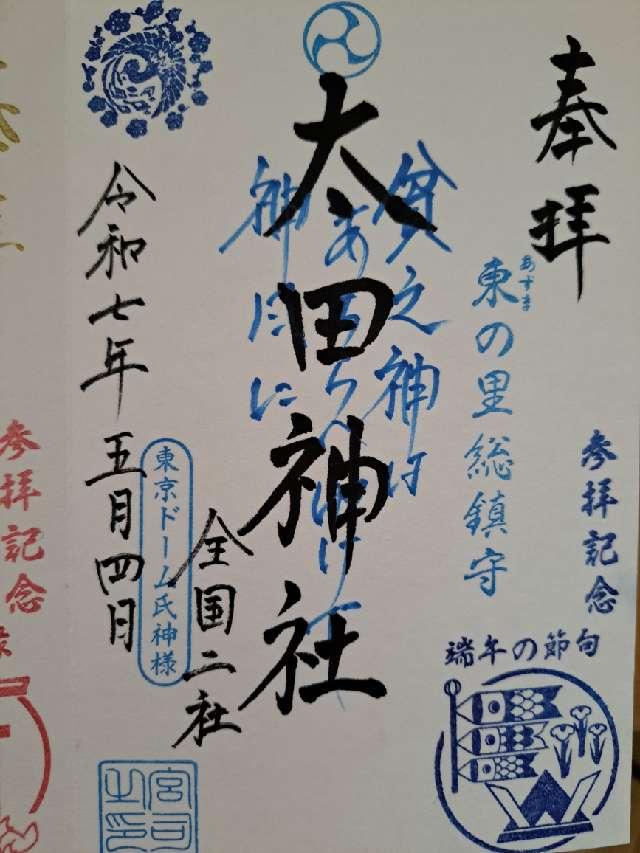 奉拝
参拝記念
東の里総鎮守
あずま
端午の節句
太田神社
貧之神は
神日に
全国二社
東京ドーム氏神様
令和七年五月四日
宮司之印
参拝記念